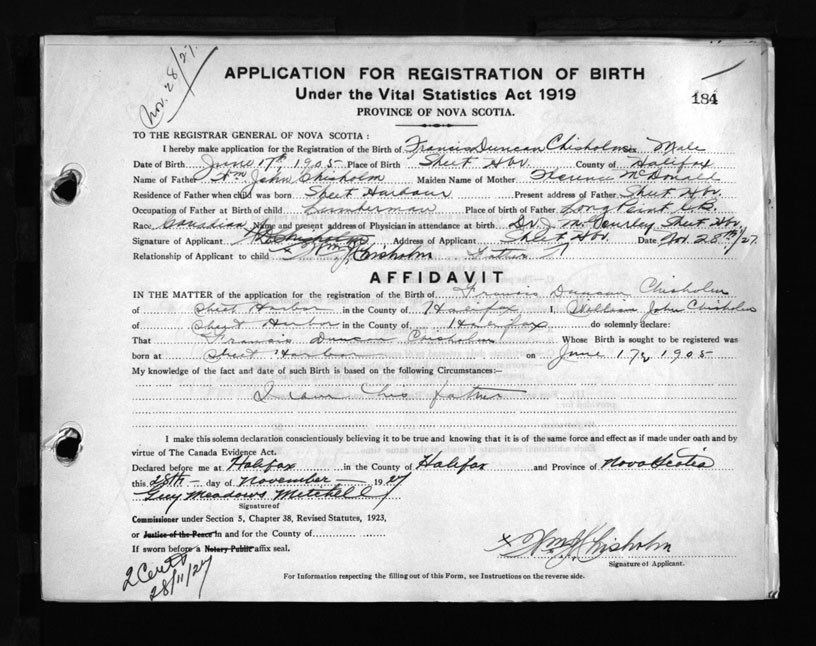 Nov. 28/27.
APPLICATION FOR REGISTRATION OF BIRTH
Under the Vital Statistics Act 1919
184
PROVINCE OF NOVA SCOTIA.
TO THE REGISTRAR GENERAL OF NOVA SCOTIA :
I hereby make application for the Registration of the Birth of Francis Duncan Chisholm Sex Male
Date of Birth June 17th, 1905 Place of Birth Sheet Hbr. County of Halifax
Name of Father Wm John Chisholm Maiden Name of Mother Florence McDonald
Residence of Father when child was born Sheet Harbour Present address of Father Sheet Hbr.
Occupation of Father at Birth of child Lumberman Place of birth of Father Long Point C.B.
Race Canadian Name and present address of Physician in attendance at birth Dr. Sheet Hbr
Signature of Applicant Wm J Chisholm Address of Applicant Sheet Hbr. Date Nov. 28th/27.
Relationship of Applicant to child Father
AFFIDAVIT
IN THE MATTER of the application for the registration of the Birth of Francis Duncan Chisholm
of Sheet Harbor in the County of Halifax I, William John Chisholm
of Sheet Harbor in the County of Halifax do solemnly declare:
That Francis Duncan Chisholm Whose Birth is sought to be registered was
born at Sheet Harbor on June 17, 1905
My knowledge of the fact and date of such Birth is based on the following Circumstances:—
I am his father
I make this solemn declaration conscientiously believing it to be true and knowing that it is of the same force and effect as if made under oath and by
virtue of The Canada Evidence Act.
Declared before me at Halifax in the County of Halifax and Province of Nova Scotia
this 28th day of November 1927
Guy Meadows Mitchell
Signature of
Commissioner under Section 5, Chapter 38, Revised Statutes, 1923,
or Justice of the Peace in and for the County of
If sworn before a Notary Public affix seal.
x Wm J Chisholm
Signature of Applicant.
2 Certs
28/11/27
For Information respecting the filling out of this Form, see Instructions on the reverse side.